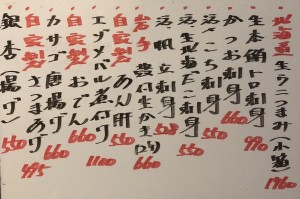 北海道生ウニつまみ(小箱) 1960
生本鮪トロ刺身 990
かつお刺身 660
活〆さごし刺身 550
活北海たこ刺身 550
活帆立刺身 508
岩手 豊円生かき(1コ) 660
自家製 あん肝 550
エゾメバル煮付け 1100
自家製 おでん 660
カサゴ唐揚げ 660
自家製 さつまあげ 495
銀杏(揚げ) 550